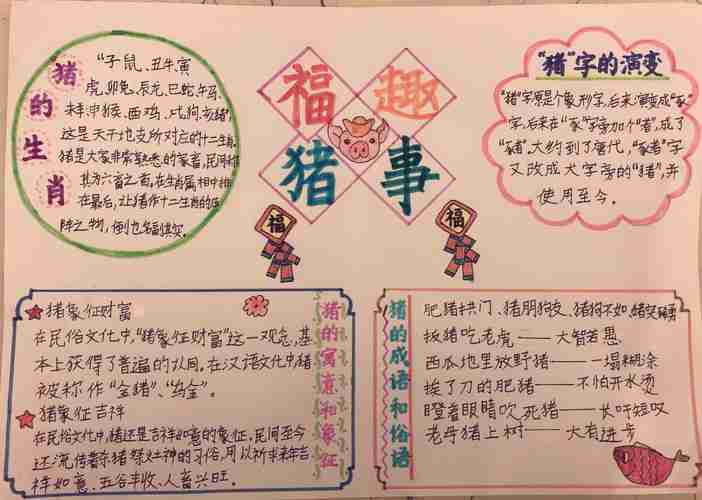 猪的生肖
“子鼠、丑牛、寅
虎、卯兔、辰龙、巳蛇、午马、
未羊、申猴、酉鸡、戌狗、亥猪”,
这是天干地支所对应的十二生肖。
猪是大家非常熟悉的家畜,民间将
其为六畜之首,在生肖属相中排
在最后,让猪作十二生肖的压
阵之物,倒也名副其实。
福趣
猪事
福
福
“猪”字的演变
“猪”字原是个象形字,后来演变成“豕”
字,后来在“豕”字旁加个“者”,成了
“豬”,大约到了唐代,“豕者”字
又改成犬字旁的“猪”,并
使用至今。
猪象征财富
在民俗文化中,“猪象征财富”这一观念,基
本上获得了普遍的认同。在汉语文化中,猪
被称作“金猪”、“乌金”。
猪象征吉祥
在民俗文化中,猪还是吉祥如意的象征,民间至今
还流传着杀猪祭灶神的习俗,用以祈求来年吉
祥如意、五谷丰收、人畜兴旺。
猪的寓意和象征
猪的成语和俗语
肥猪拱门、猪朋狗友、猪狗不如、
扮猪吃老虎——大智若愚
西瓜地里放野猪——一塌糊涂
挨了刀的肥猪——不怕开水烫
瞪着眼睛吹死猪——长吁短叹
老母猪上树——大有进步